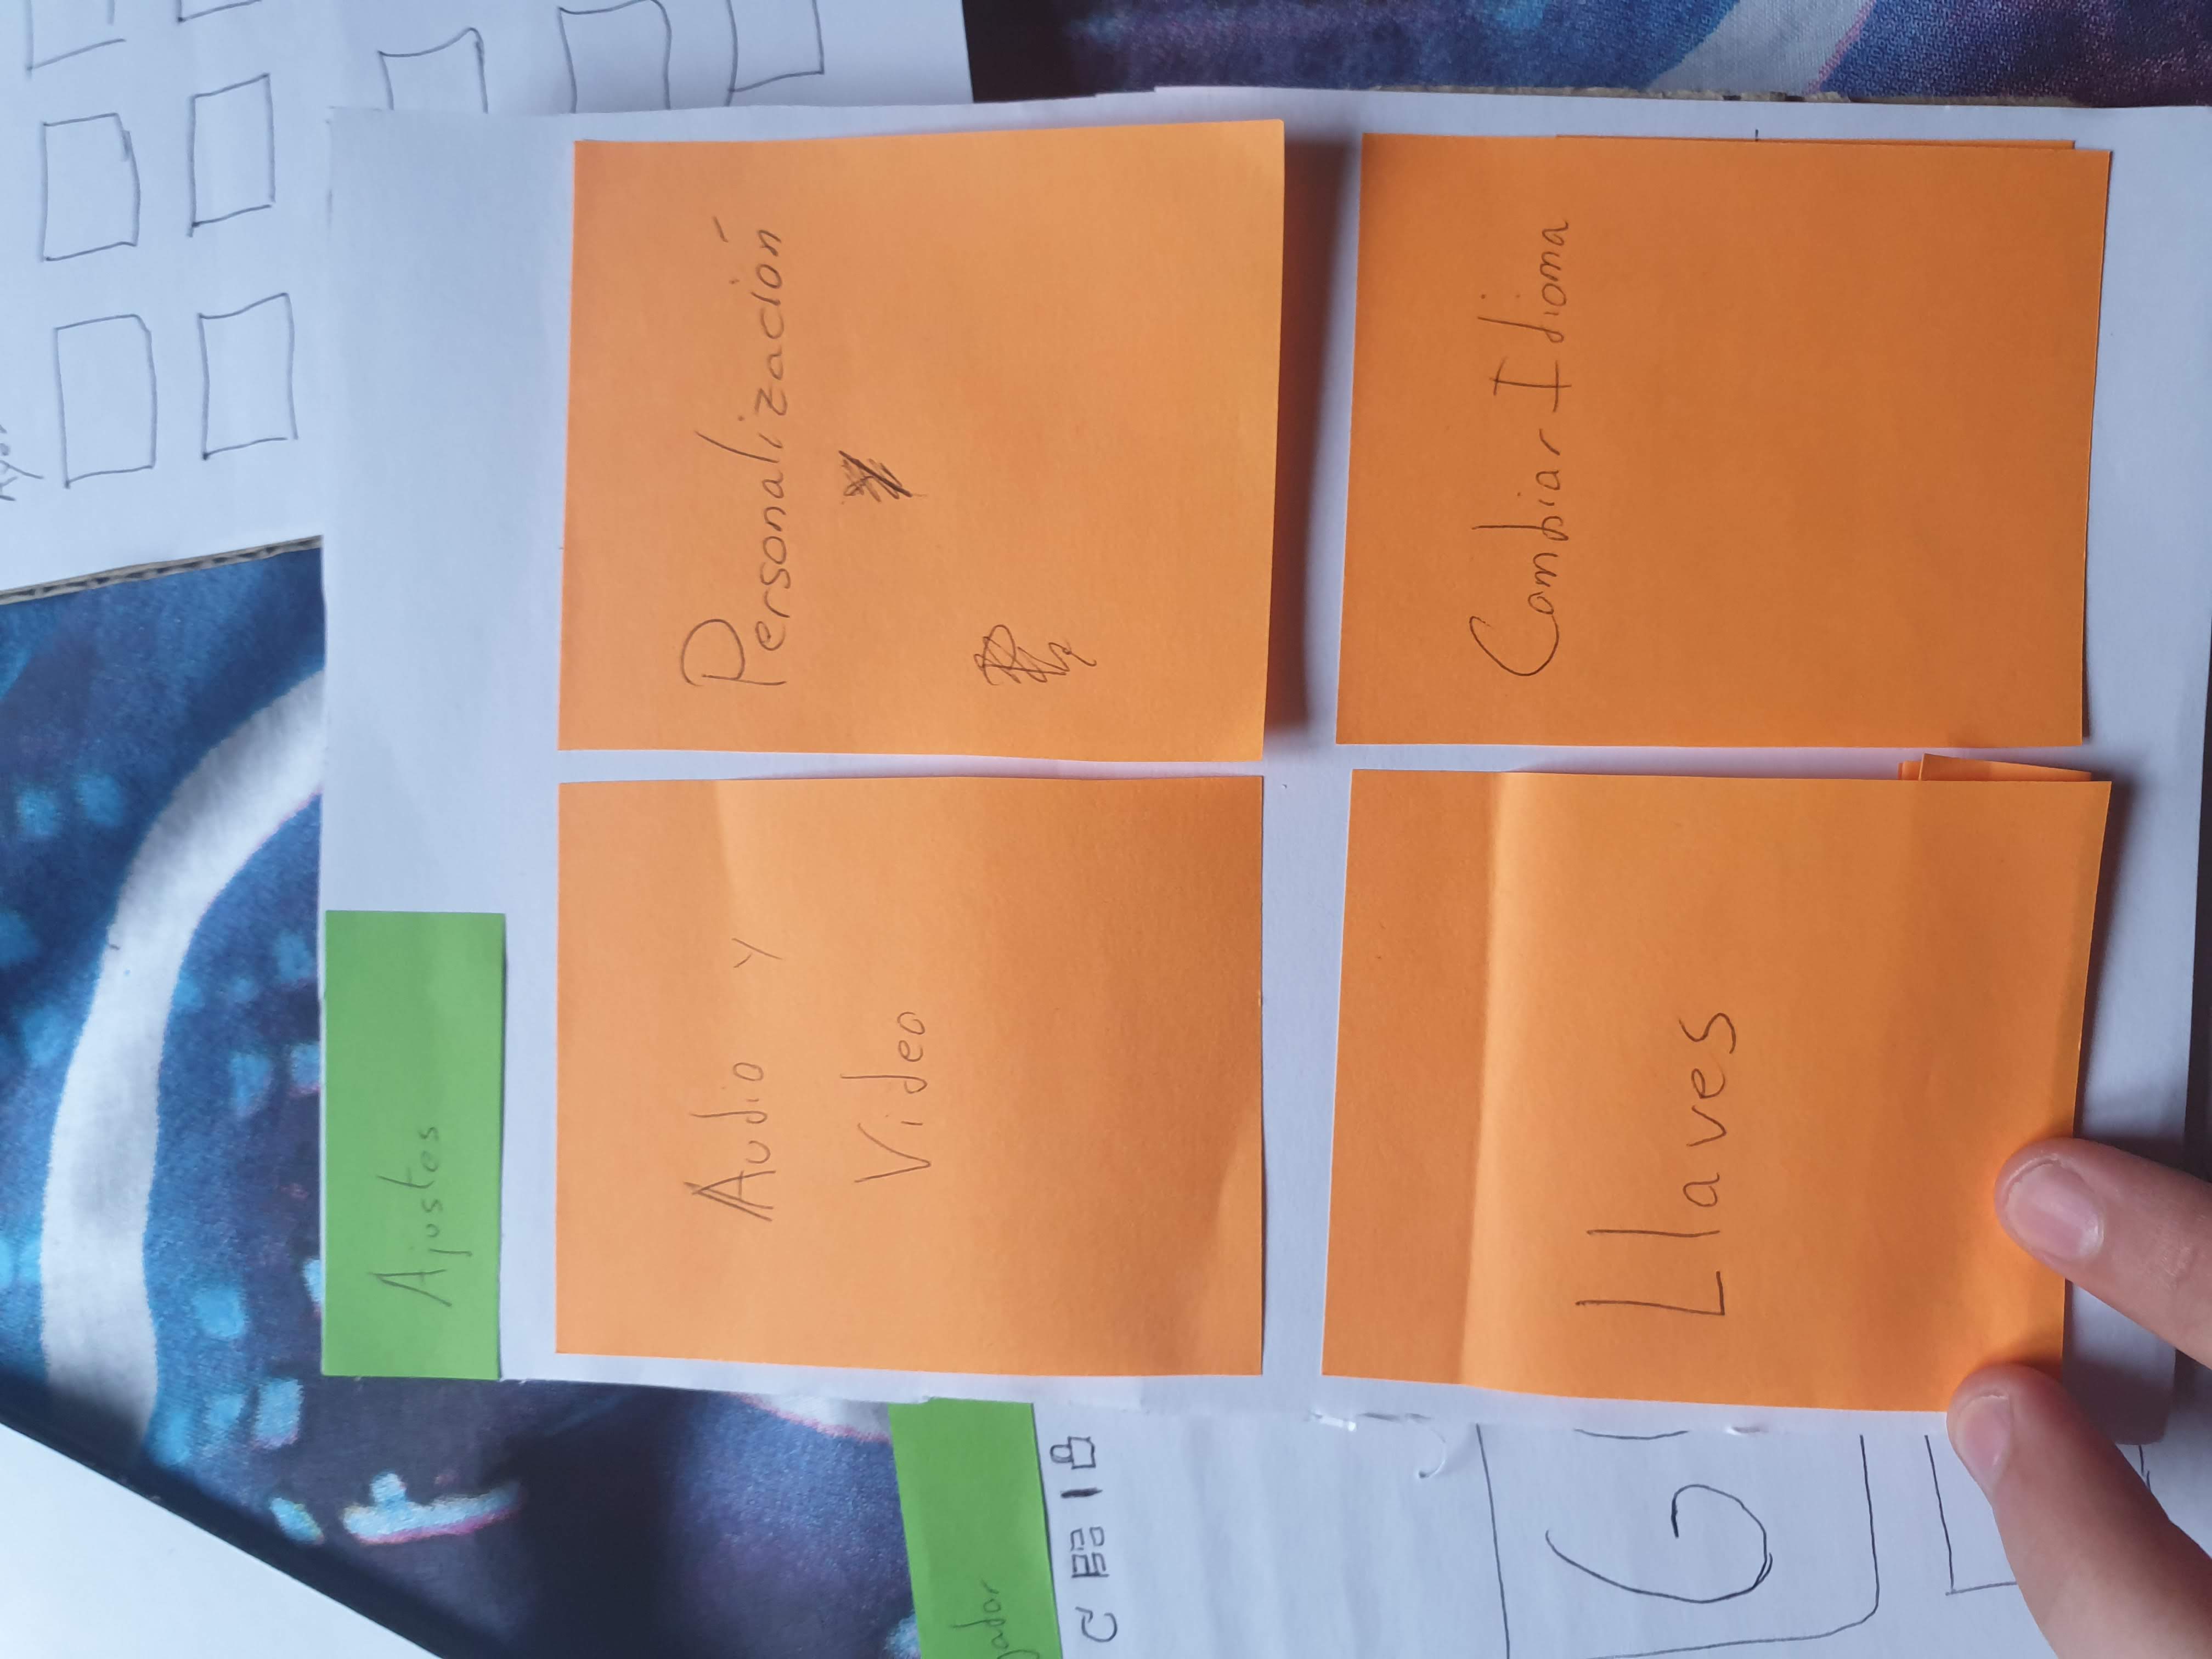 Ajustes
Audio y
Video
Personalización
Llaves
Cambiar Idioma